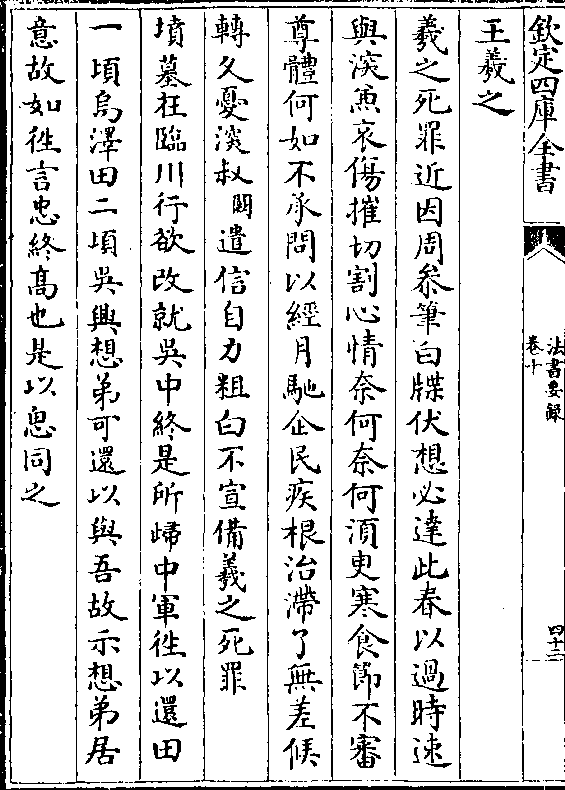 欽定四庫全書
法書要録
卷十
四十二
王羲之
羲之死罪近因周㕘筆白牒伏想必達此春以過時速
與深兼哀傷摧切割心情奈何奈何湏更寒食節不審
尊體何如不承問以經月馳企民疾根治滯了無差候
轉久憂深叔闕遣信自力粗白不宣備羲之死罪
墳墓在臨川行欲改就吳中終是所歸中軍徃以還田
一頃烏澤田二頃吳興想弟可還以與吾故示想弟居
意故如徃言忠終髙也是以思同之